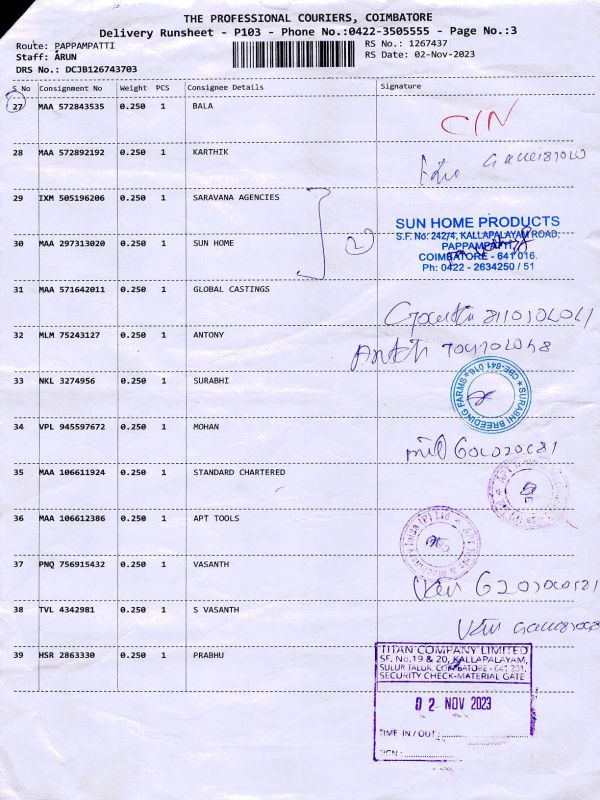 THE PROFESSIONAL COURIERS, COIMBATORE
Delivery Runsheet - P103 - Phone No.:0422-3505555 - Page No.:3
Route: PAPPAMPATTI
RS No.: 1267437
Staff: ARUN
RS Date: 02-Nov-2023
DRS No.: DCJB126743703
S No Consignment No Weight PCS Consignee Details Signature
27 MAA 572843535 0.250 1 BALA
CIN
28 MAA 572892192 0.250 1 KARTHIK
29 IXM 505196206 0.250 1 SARAVANA AGENCIES
SUN HOME PRODUCTS
S.F. No: 242/4, KALLAPALAYAM ROAD,
30 MAA 297313020 0.250 1 SUN HOME
2
PAPPAMPATTI,
COIMBATORE - 641 016.
Ph: 0422 - 2634250 / 51
31 MAA 571642011 0.250 1 GLOBAL CASTINGS
32 MLM 75243127 0.250 1 ANTONY
33 NKL 3274956 0.250 1 SURABHI
SURABHI BREEDING FARMS
CBE-641 016
34 VPL 945597672 0.250 1 MOHAN
35 MAA 106611924 0.250 1 STANDARD CHARTERED
36 MAA 106612386 0.250 1 APT TOOLS
37 PNQ 756915432 0.250 1 VASANTH
38 TVL 4342981 0.250 1 S VASANTH
39 HSR 2863330 0.250 1 PRABHU
TITAN COMPANY LIMITED
SF. No.19 & 20, KALLAPALAYAM,
SULUR TALUK, COIMBATORE - 641 201.
SECURITY CHECK-MATERIAL GATE
02 NOV 2023
TIME IN / OUT :
SIGN :